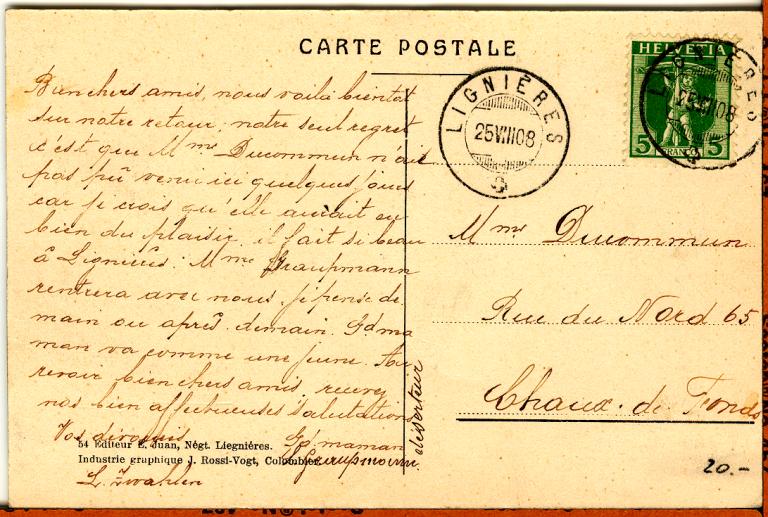 CARTE POSTALE
Bien chers amis, nous voilà bientôt
sur notre retour; notre seul regret
c'est que Mme Ducommun n'ait
pas pû venir ici quelques jours
car je crois qu'elle aurait eu
bien du plaisir, il fait si beau
à Lignières. Mme Graupmann
rentrera avec nous. Je pense de
main ou après demain. Gd ma
man va comme une jeune. Au
revoir bien chers amis recevez
nos bien affectueuses salutations
Vos dévoués
Gd maman
Graupmann
L. Zwahlen
54 Editeur E. Juan, Négt. Liegnières.
Industrie graphique J. Rossi-Vogt, Colombier.
LIGNIÈRES
25 VIII 08
HELVETIA
5 FRANCO 5
LIGNIÈRES
25 VIII 08
Mme Ducommun
Rue du Nord 65
Chaux-de-Fonds
20.-